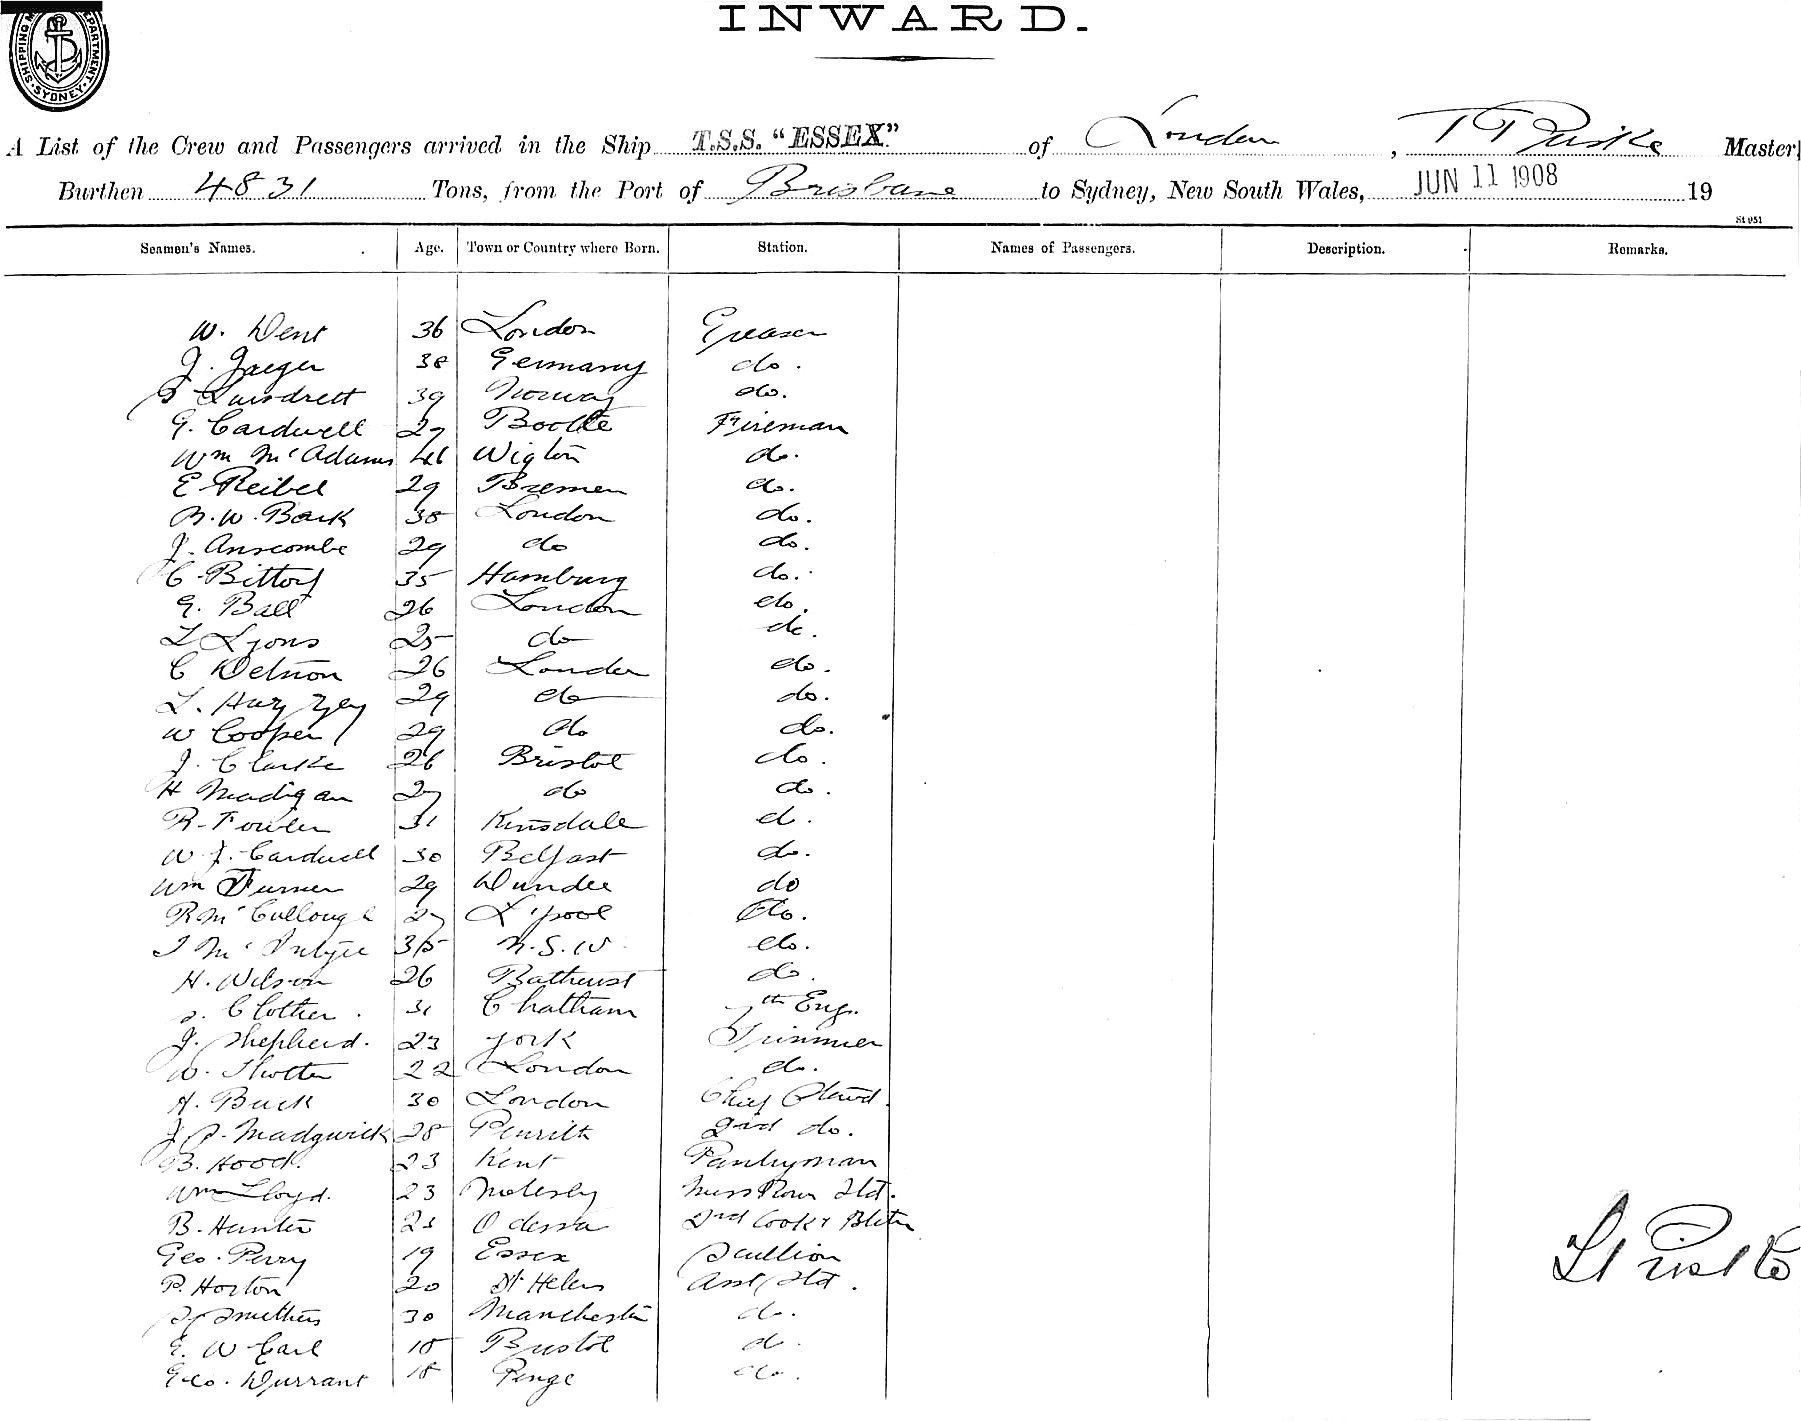 INWARD.
SHIPPING DEPARTMENT SYDNEY
A List of the Crew and Passengers arrived in the Ship T.S.S. "ESSEX" of London, Master,
Burthen 4831 Tons, from the Port of Brisbane to Sydney, New South Wales, JUN 11 1908 19
St 951
Seamen's Names. Age. Town or Country where Born. Station. Names of Passengers. Description. Remarks.
W. Dent 36 London Greaser
J. Jaeger 38 Germany do.
39 Norway do.
G. Cardwell 27 Bootle Fireman
Wm McAdams 46 Wigton do.
E Reibel 29 Bremen do.
B. W. Bark 38 London do.
J. Anscombe 29 do do.
C. Bittorf 35 Hamburg do.
G. Ball 26 London do.
L Lyons 25 do do.
C 26 London do.
L. 29 do do.
W Cooper 29 do do.
J. Clarke 26 Bristol do.
H Madigan 27 do do.
R. Fowler 31 Kinsdale d.
W J. Cardwell 30 Belfast do.
Wm Turner 29 Dundee do
R McCullough 27 L'pool do.
McIntyre 35 N.S.W do.
H. Wilson 26 Bathurst do.
Clother. 31 Chatham 7th Eng.
J. Shepherd. 23 York Trimmer
W. 22 London do.
A. Buck 30 London Chief Stewd.
J. S. Madgwick 28 Penrith 2nd do.
B. Hood. 23 Kent Pantryman
Wm Lloyd. 23 Molesby Mess Room Std.
B. Hunter 2nd Cook & Btcr
Odessa
Geo. Perry 19 Essex Scullion
P. Horton 20 St Helens Asst Std.
Smithers 30 Manchester do.
E. W Earl 18 Bristol d.
Geo. Durrant 18 Penge do.